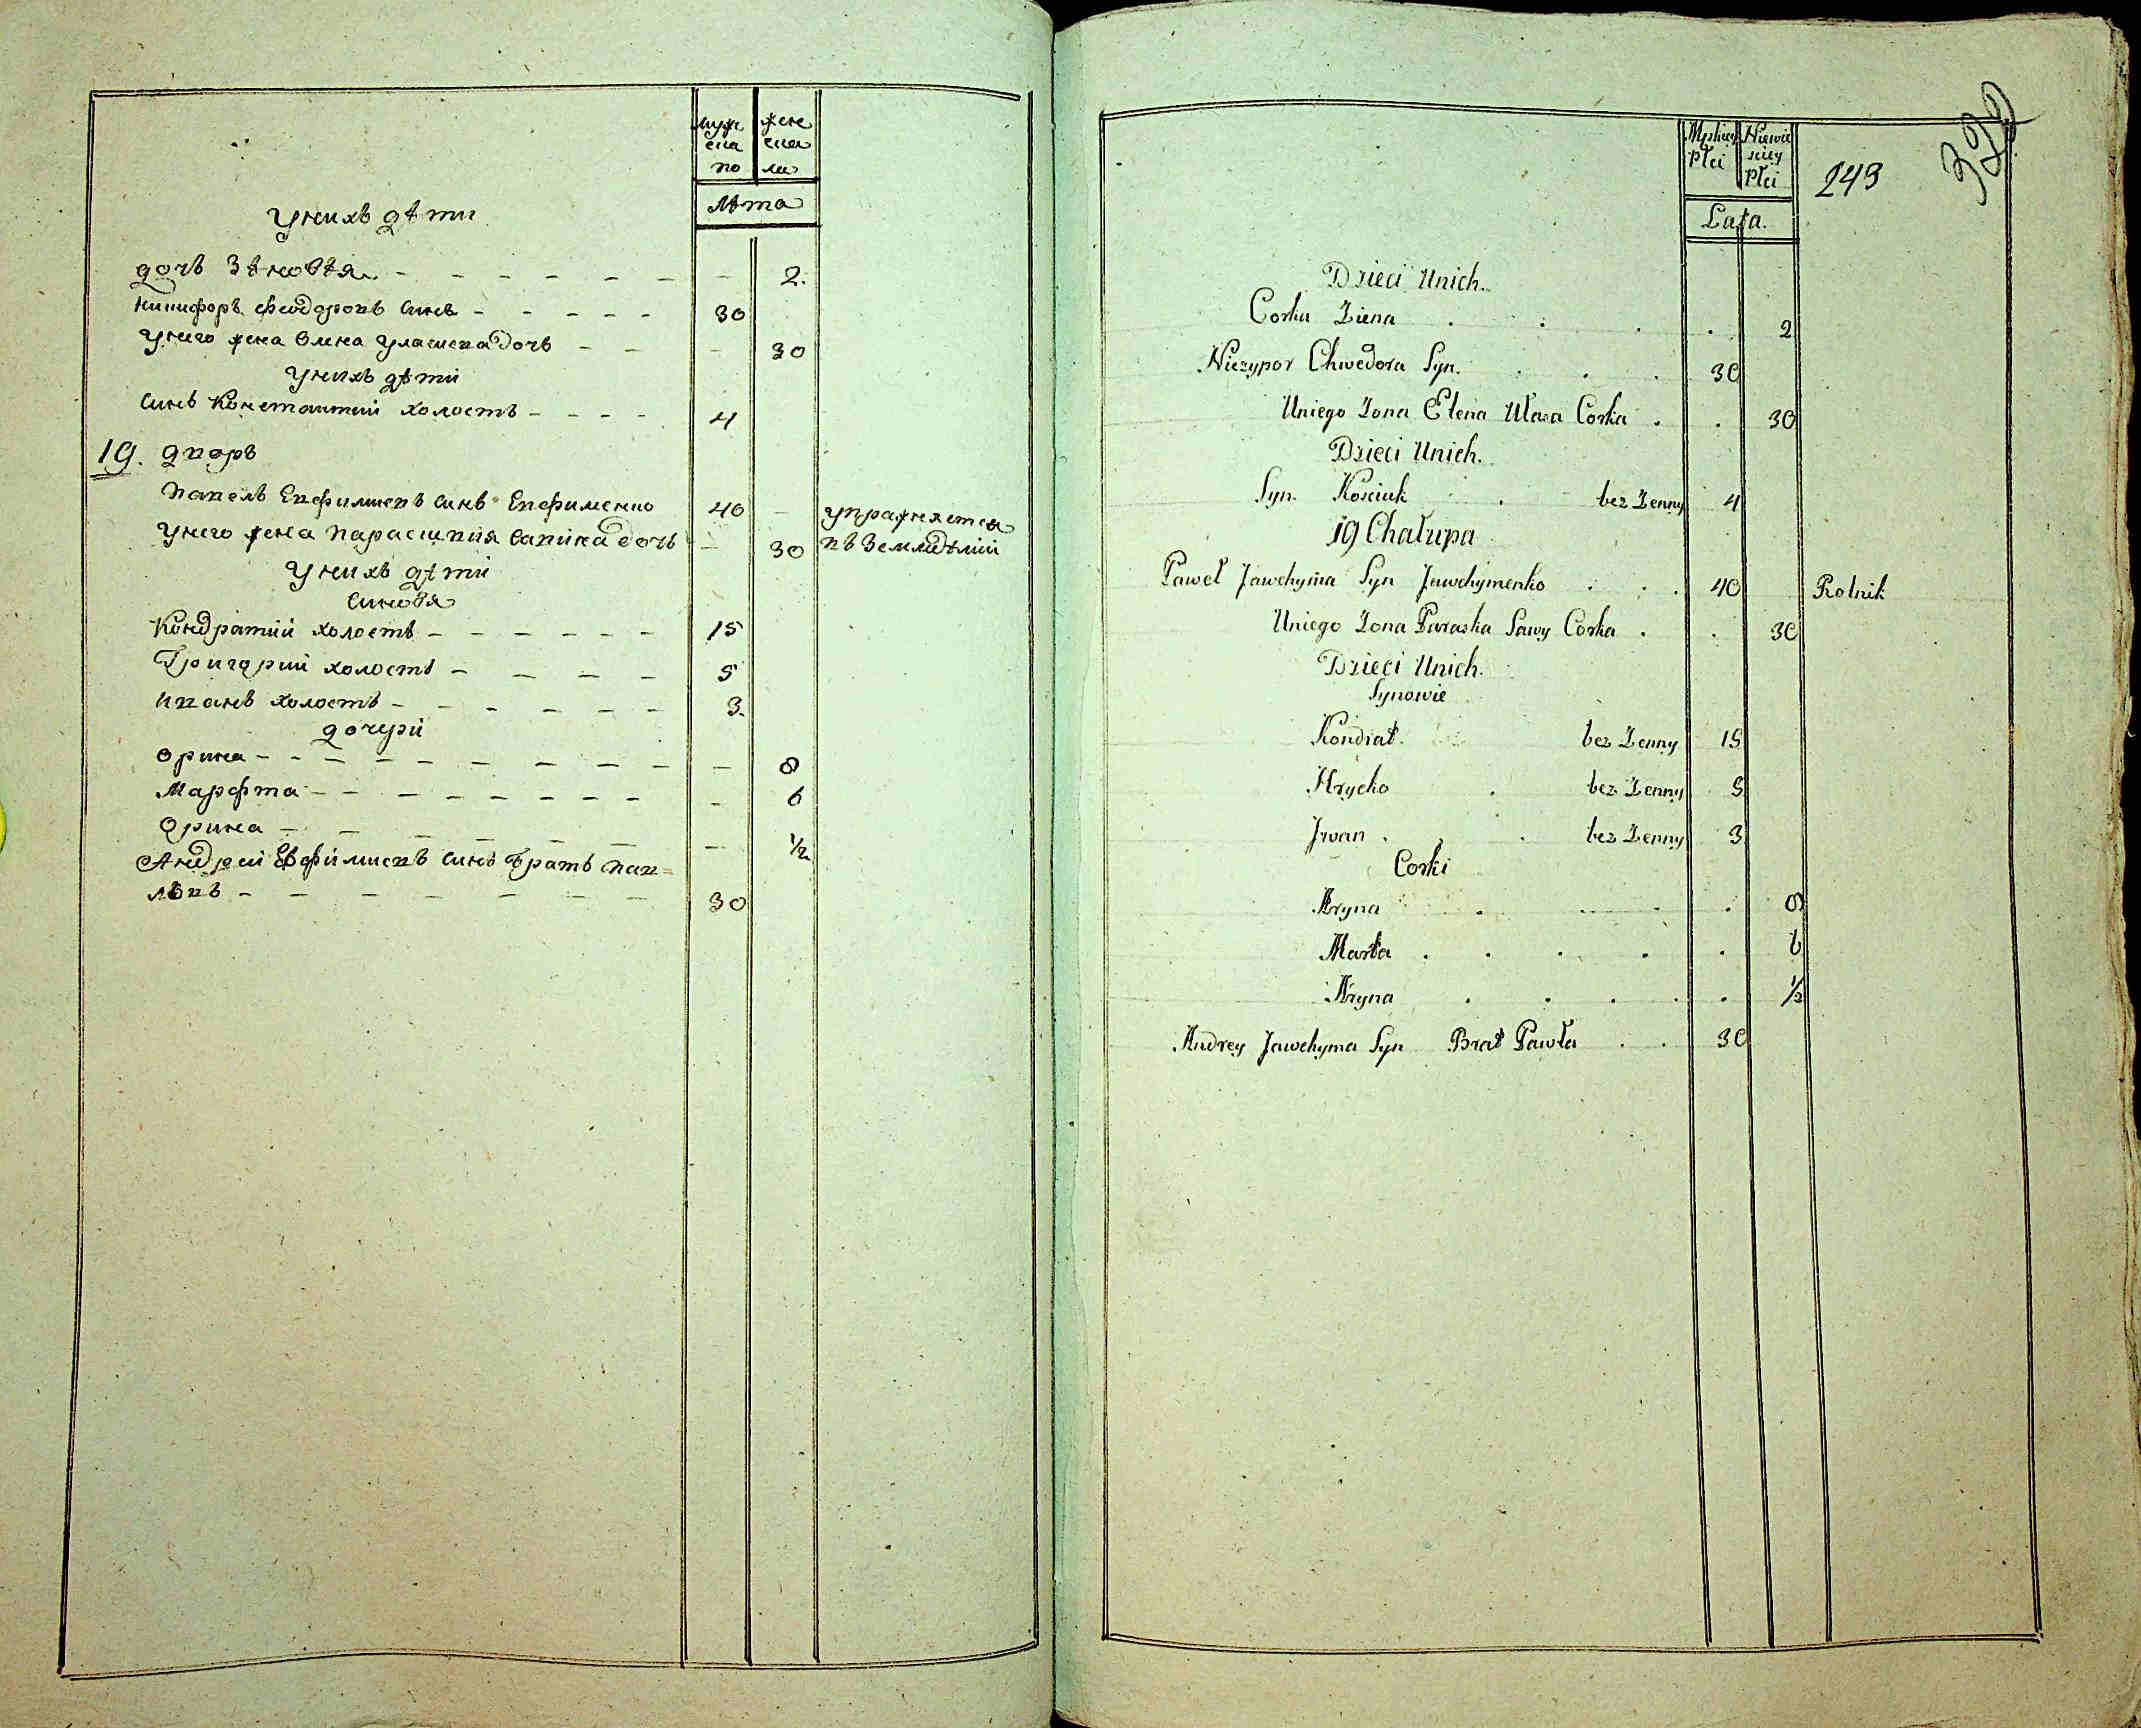 муж
ска
го
жен
ска
го
лѣта
у них дѣти
дочъ Зѣновѣя - - - - - - - 2.
Никифоръ Феодоровъ синъ - - - - - 30
у него жена Олена Уласиева дочъ - - - 30
у нихъ дѣти
синъ Константий холостъ - - - - 4
19. дворъ
Павелъ Евфимиевъ синъ Евфименко 40 - упражняется
у него жена Параскивия Савина дочъ - 30 въ земледѣлии
у нихъ дѣти
синовя
Кондратий холостъ - - - - - - 15
Григорий холостъ - - - - 5
Иванъ холостъ - - - - - - 3.
дочери
Орина - - - - - - - - - - 8
Марфта - - - - - - - - 6
Орина - - - - - - - 1/2
Андрей Евфимиевъ синъ братъ Пав=
ловъ - - - - - - - 30
329
Męskiey
Płci
Niewie
sciey
Płci
243
Lata.
Dzieci Unich.
Corka Ziena . . . . 2
Niczypor Chwedora Syn. . . . 30
Uniego Zona Elena Ułasa Corka . . 30
Dzieci Unich.
Syn. Kościuk . bez Zenny 4
19 Chałupa
Paweł Jawchyma Syn Jawchymenko . . . 40 Rolnik
Uniego Zona Paraska Sawy Corka . . 30
Dzieci Unich.
Synowie
Kondrat. bez Zenny 15
Hrycko . bez Zenny 5
Jwan . . bez Zenny 3
Corki
Aryna . . . . 8
Marta . . . . . 6
Aryna . . . . . 1/2
Andrey Jawchyma Syn Brat Pawła . . 30